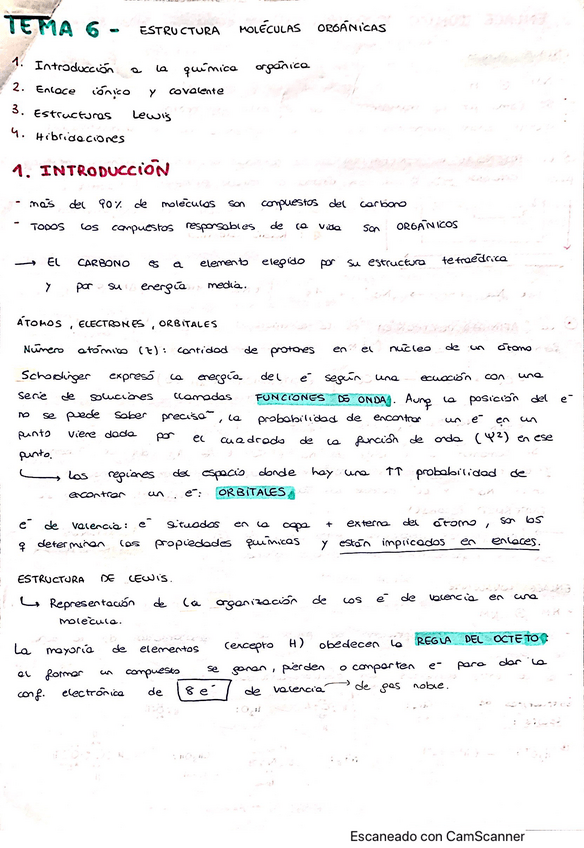 TEMA 6 - ESTRUCTURA MOLÉCULAS ORGÁNICAS
1. Introducción a la química orgánica
2. Enlace iónico y covalente
3. Estructuras Lewis
4. Hibridaciones
1. INTRODUCCIÓN
- más del 90% de moléculas son compuestos del carbono
- TODOS los compuestos responsables de la vida son ORGÁNICOS
→ EL CARBONO es a elemento elegido por su estructura tetraédrica
y por su energía media.
ÁTOMOS, ELECTRONES, ORBITALES
Número atómico (z): cantidad de protones en el núcleo de un átomo
Schordinger expresó la energía del e⁻ según una ecuación con una
serie de soluciones llamadas FUNCIONES DE ONDA. Aunq la posición del e⁻
no se puede saber precisa⁓, la probabilidad de encontrar un e⁻ en un
punto viene dada por el cuadrado de la función de onda (Ψ²) en ese
punto.
↳ Las regiones del espacio donde hay una ↑↑ probabilidad de
encontrar un e⁻: ORBITALES
e⁻ de valencia: e⁻ situados en la capa + externa del átomo, son los
q determinan las propiedades químicas y están implicados en enlaces.
ESTRUCTURA DE LEWIS.
↳ Representación de la organización de los e⁻ de valencia en una
molécula.
La mayoría de elementos (excepto H) obedecen la REGLA DEL OCTETO:
al formar un compuesto se ganan, pierden o comparten e⁻ para dar la
conf. electrónica de 8 e⁻ de valencia → de gas noble.
Escaneado con CamScanner